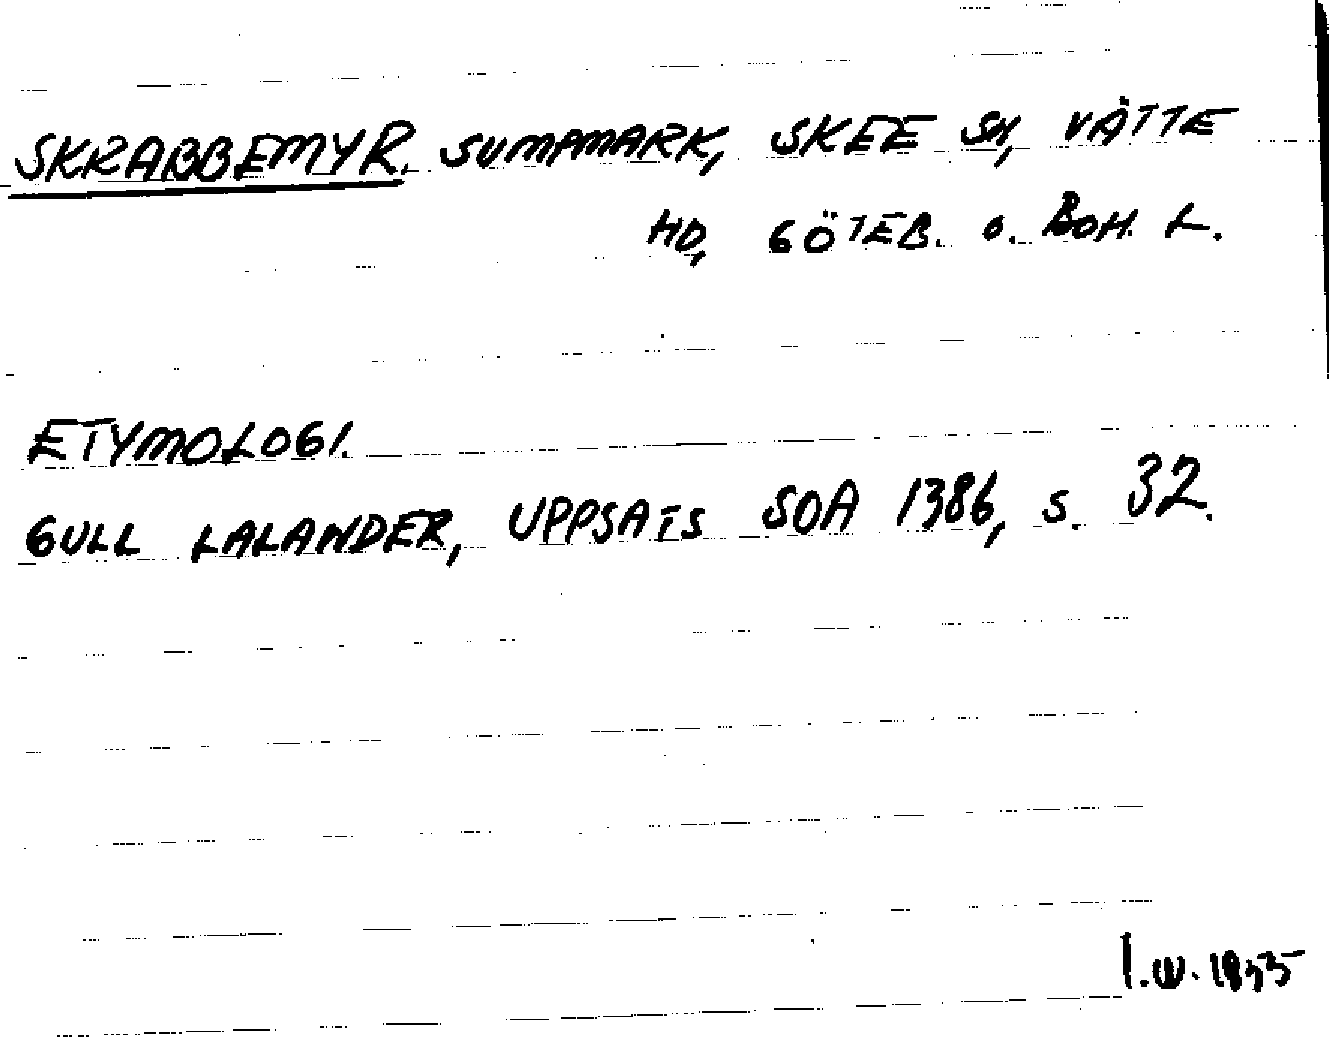 SKRABBEMYR. SUMPMARK, SKEE SN, VÄTTE
HD, GÖTEB. O. BOH. L.
ETYMOLOGI.
GULL LALANDER, UPPSATS SOA 1386, S. 32.
I.W.